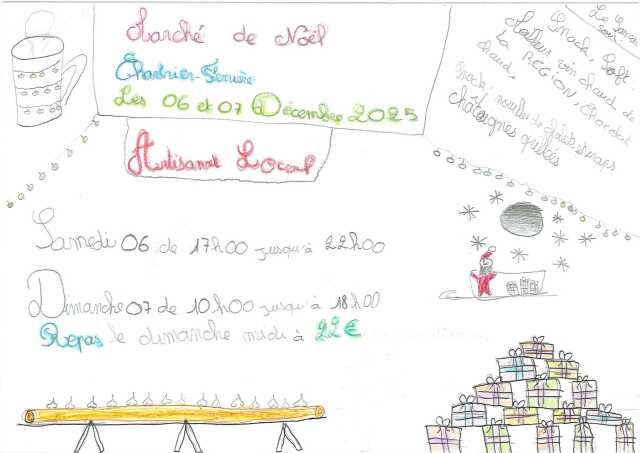 Marché de Noël
Charnier-Ferrière
Les 06 et 07 Décembre 2025
Artisanat Local
Le Samedi
soir:
Snack, Soft,
vin chaud de
LA REGION, Chocolat
chaud,
châtaignes grillées
Samedi 06 de 17h00 jusqu'à 22h00
Dimanche 07 de 10h00 jusqu'à 18h00
Repas le dimanche midi à 22€